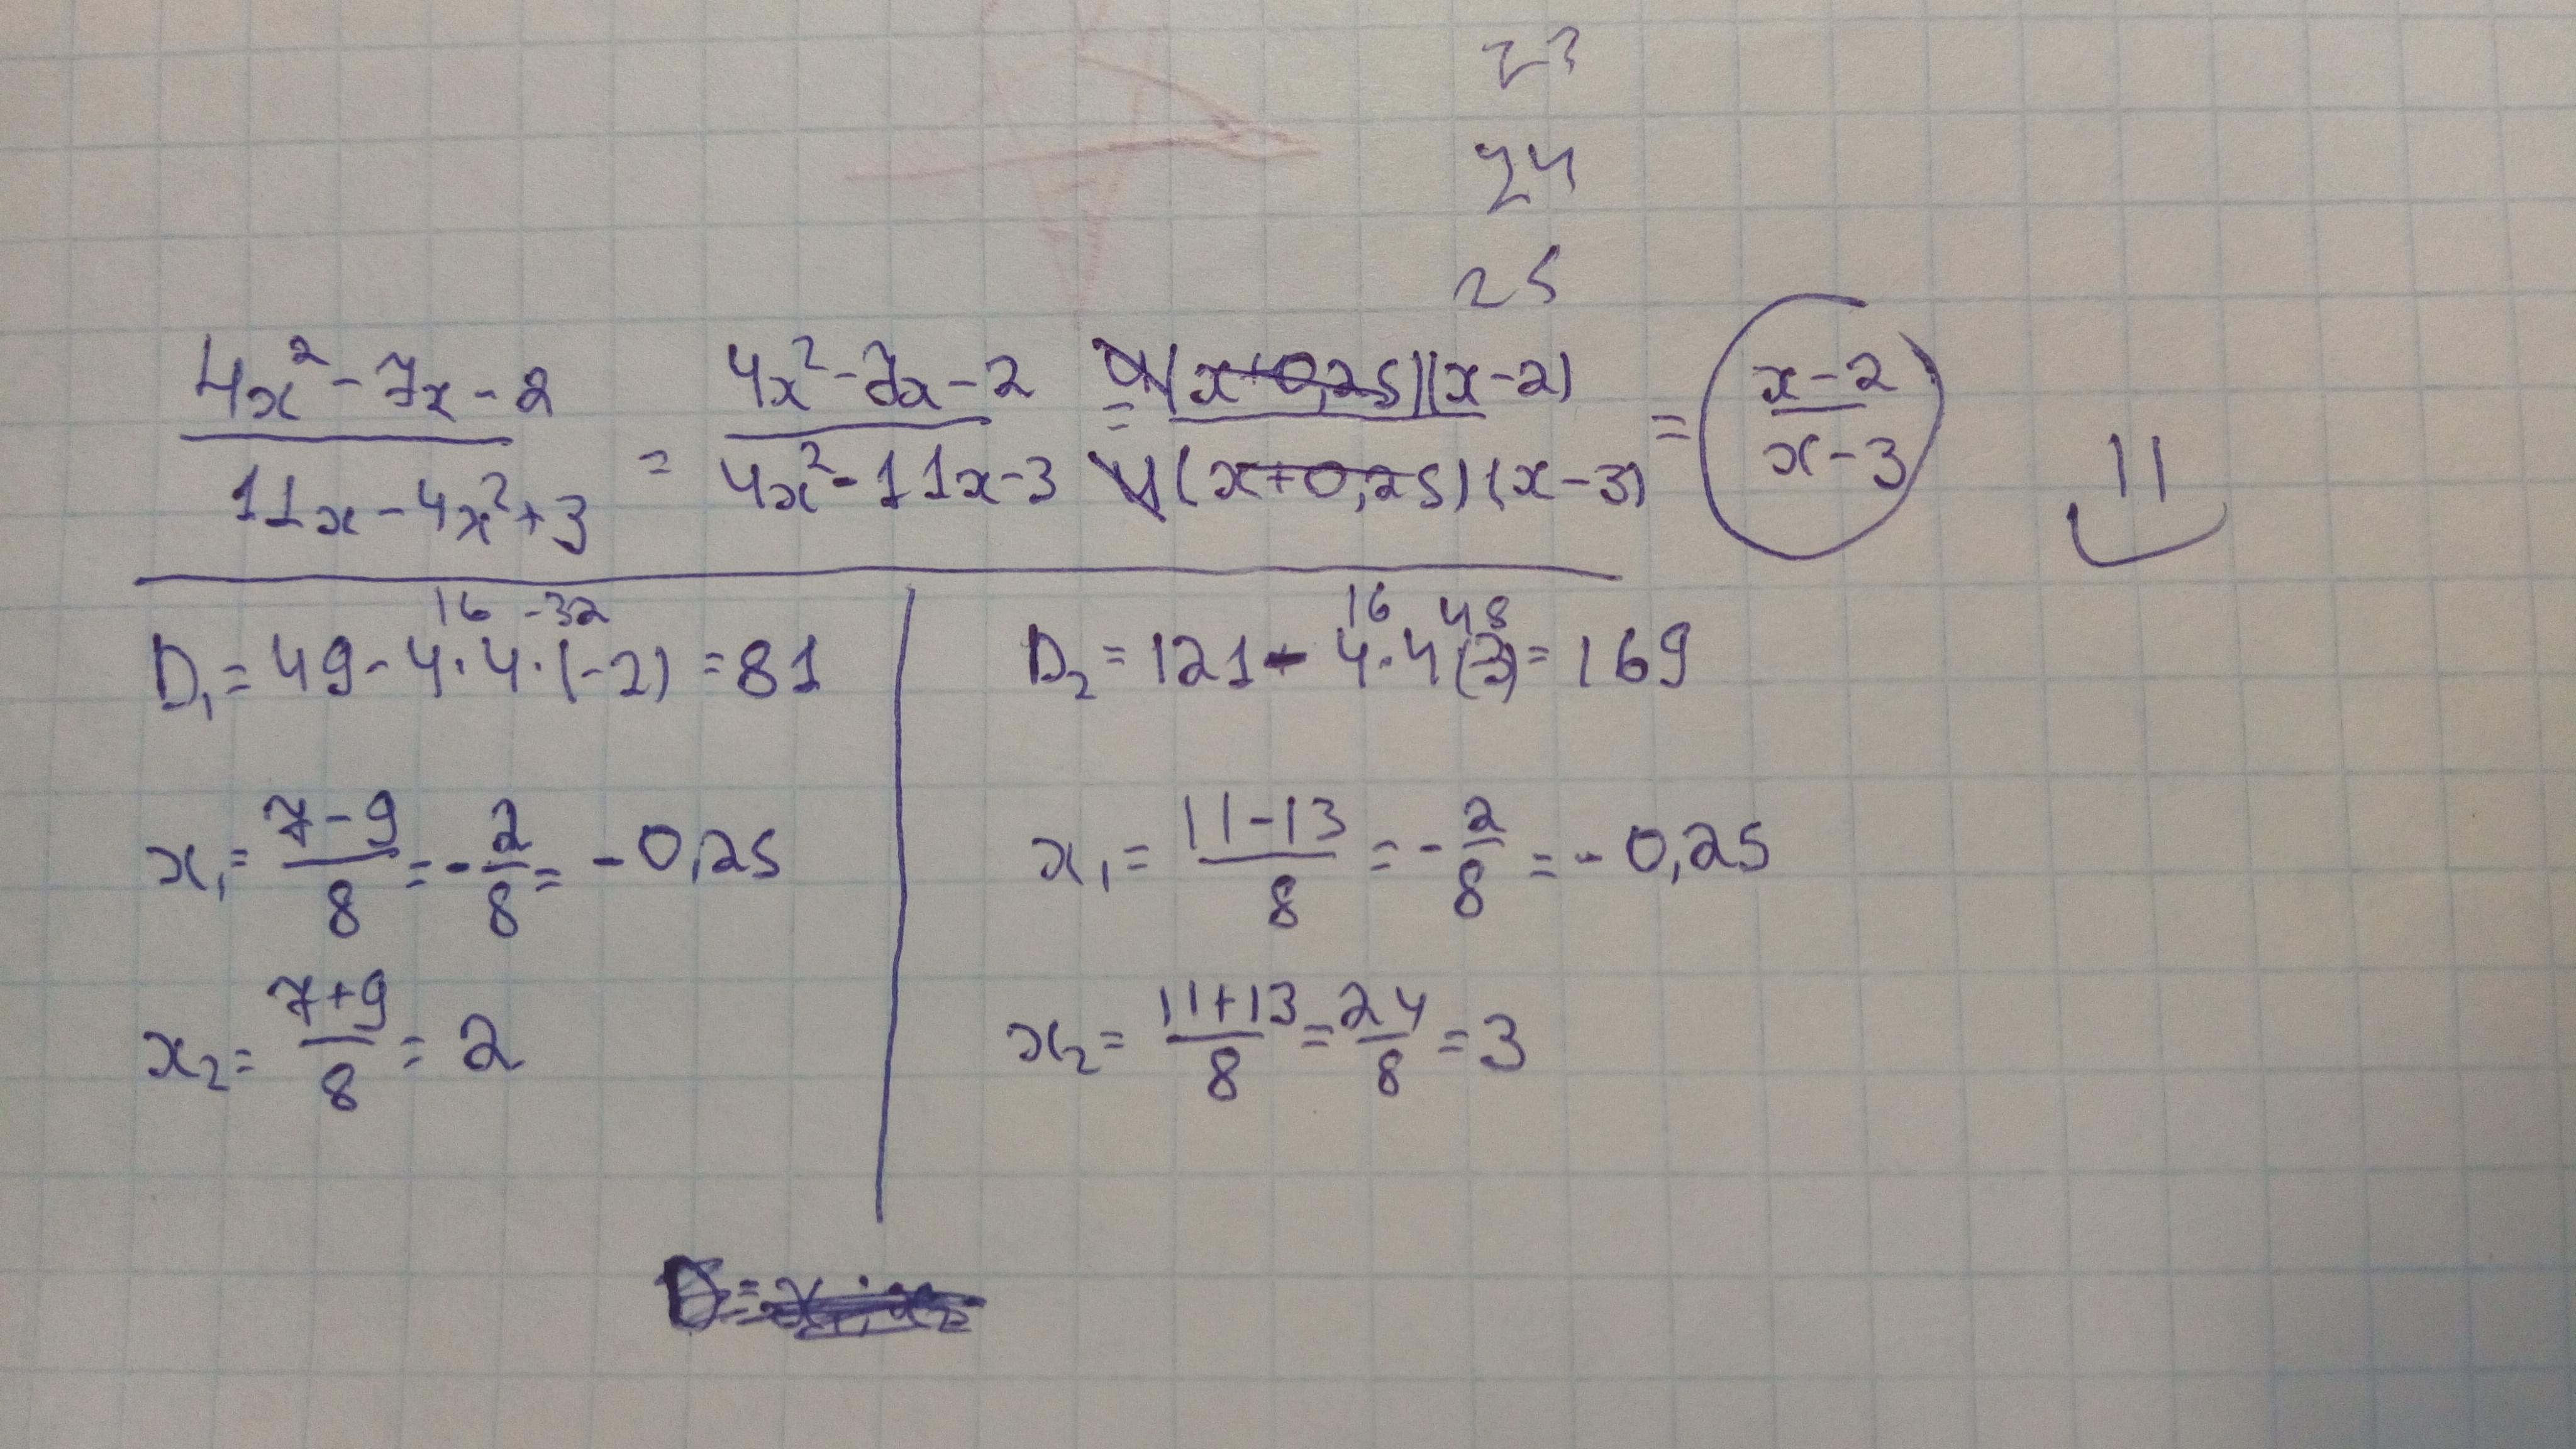 23
24
25
4x² - 7x - 2 / 11x - 4x² + 3 = 4x² - 7x - 2 / 4x² - 11x - 3 = 4(x+0,25)(x-2) / 4(x+0,25)(x-3) = x-2 / x-3
16 -32
D₁ = 49 - 4·4·(-2) = 81
x₁ = 7-9 / 8 = -2/8 = -0,25
x₂ = 7+9 / 8 = 2
16 48
D₂ = 121 - 4·4(-3) = 169
x₁ = 11-13 / 8 = -2/8 = -0,25
x₂ = 11+13 / 8 = 24/8 = 3